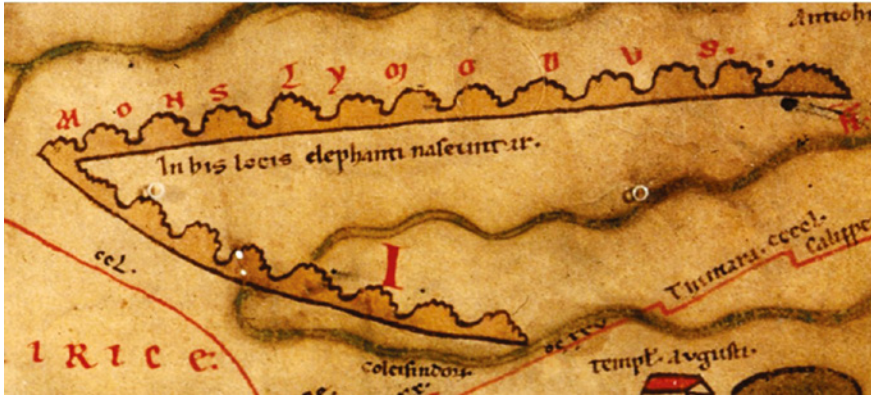 Antiohi
MONS LYMODVS.
In his locis elephanti nascuntur.
I
Timara. cccl.
ccL.
IRICE:
Colcisindor
Templ. Augusti.